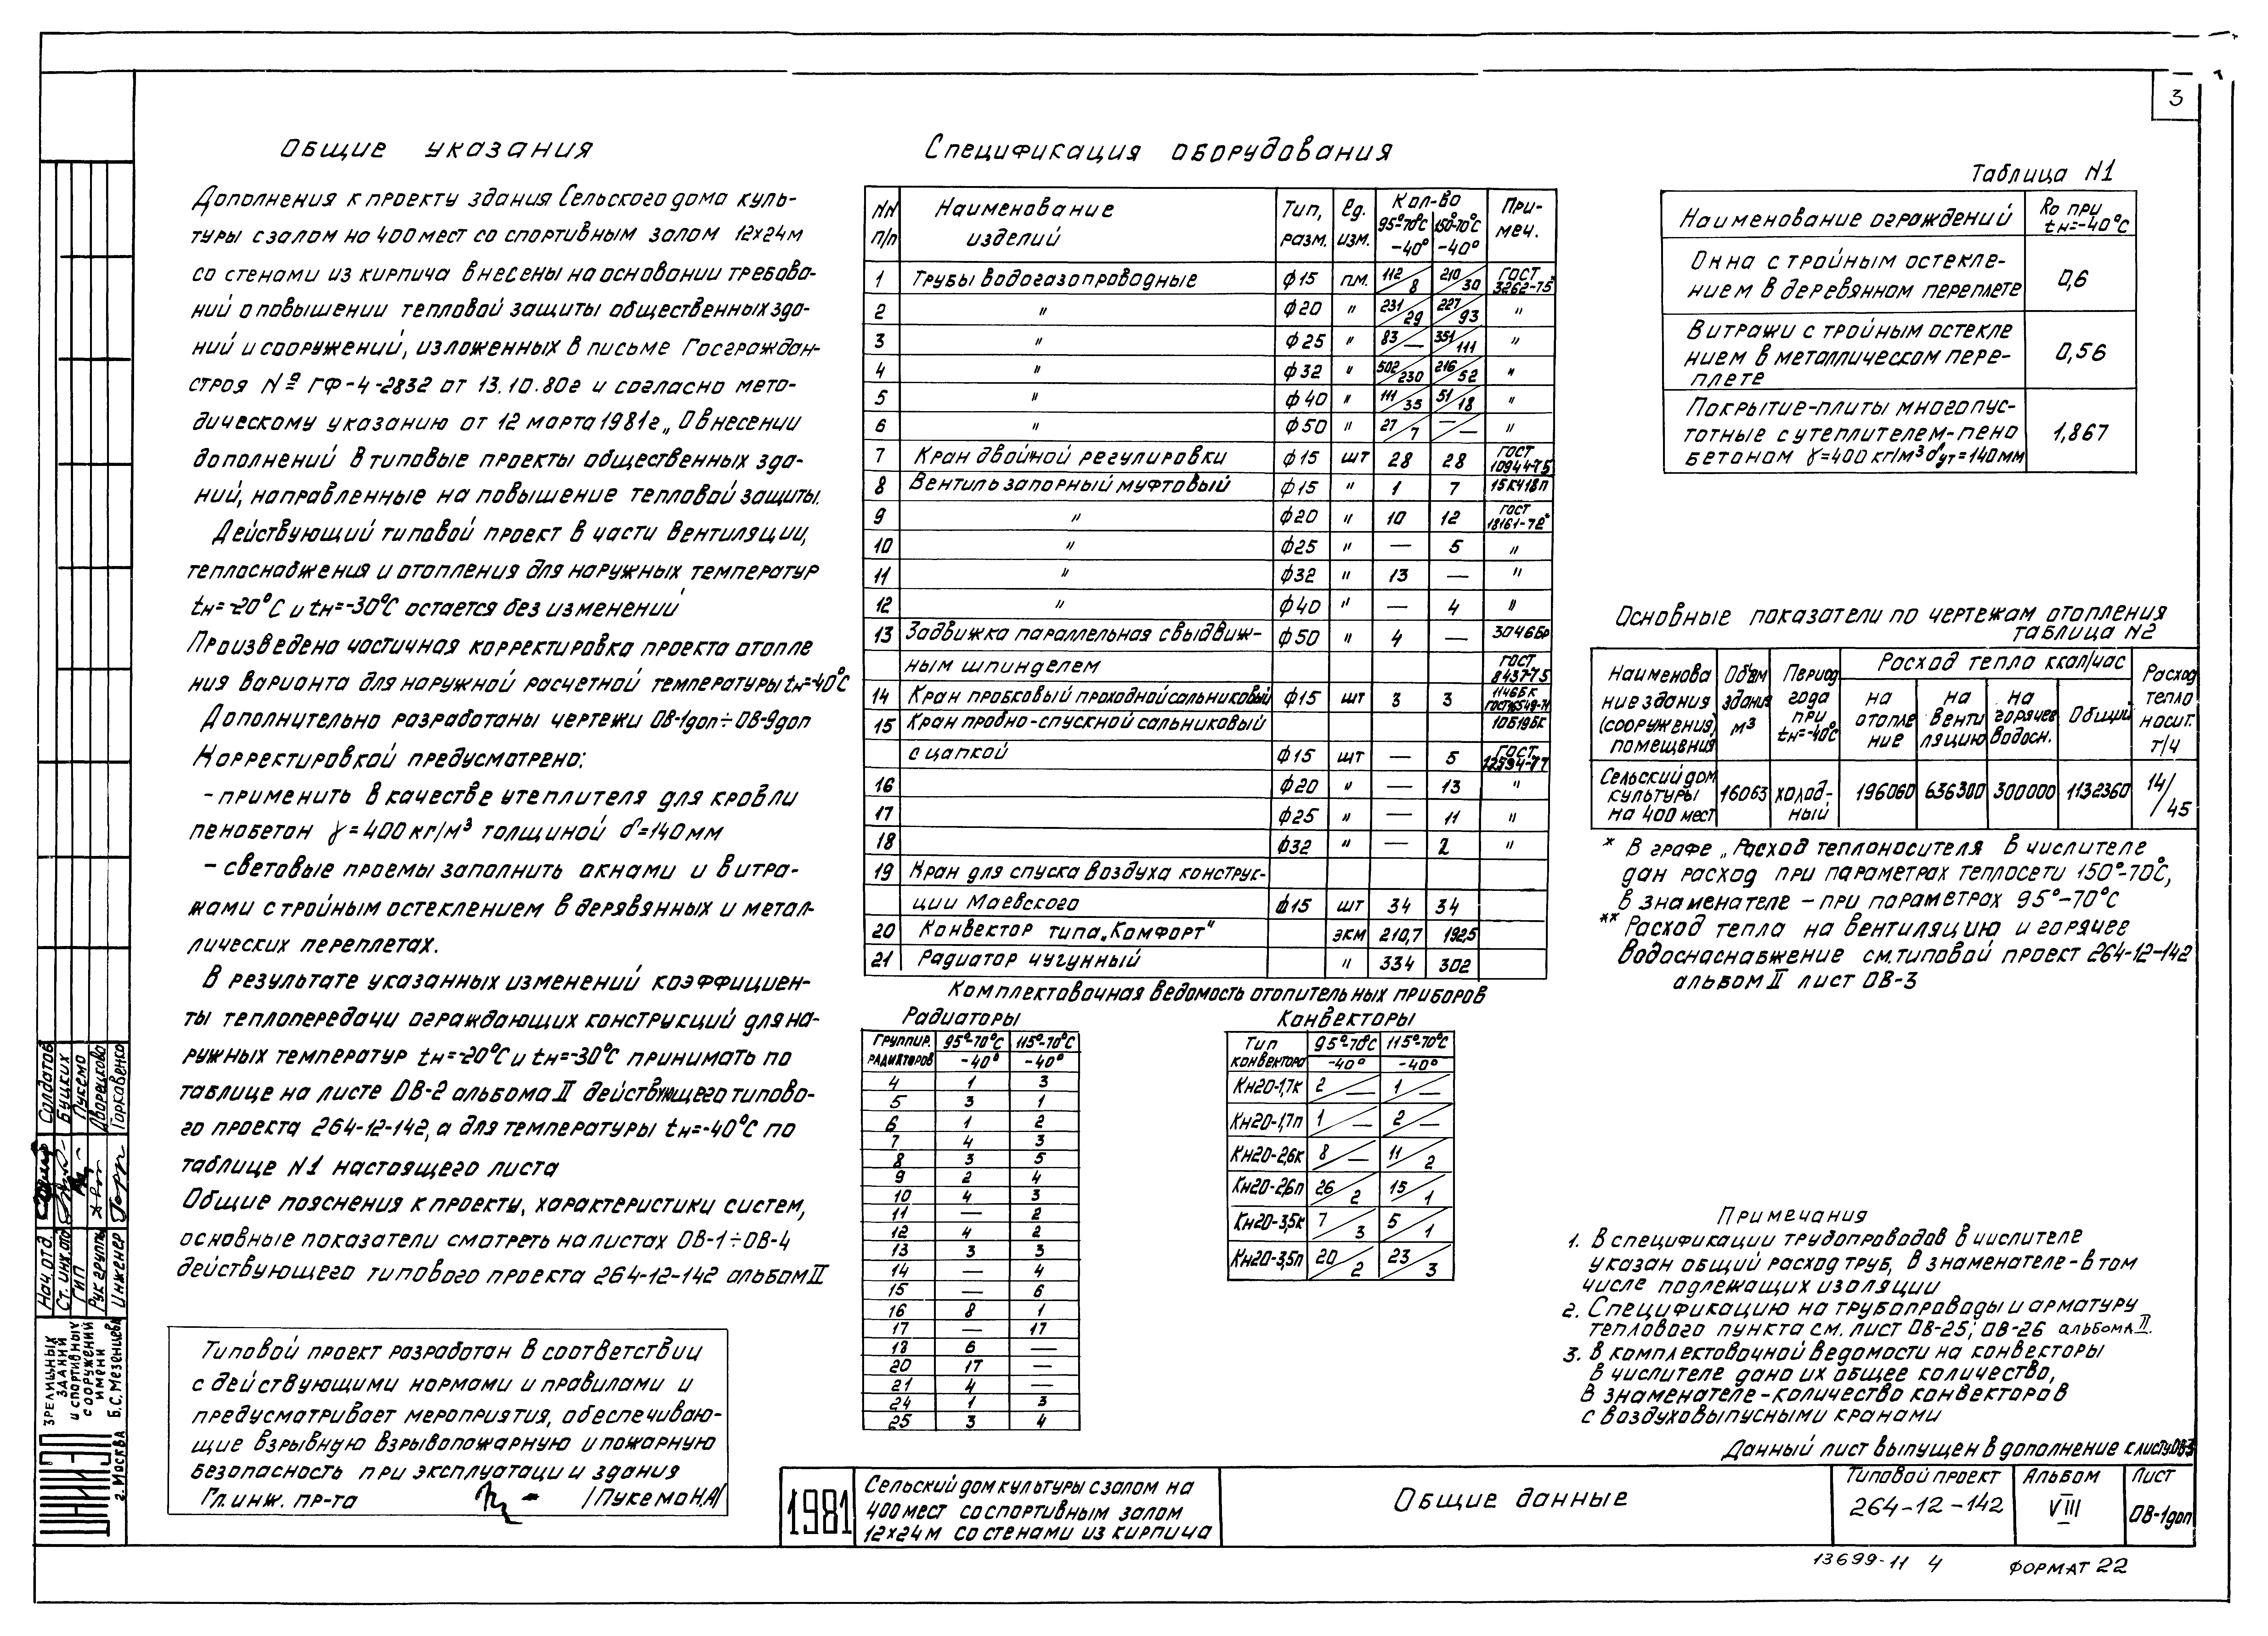 3
Общие указания
Дополнения к проекту здания Сельского дома куль-
туры с залом на 400 мест со спортивным залом 12х24м
со стенами из кирпича внесены на основании требова-
ний о повышении тепловой защиты общественных зда-
ний и сооружений, изложенных в письме Госграждан-
строя №ГФ-4-2832 от 13.10.80г и согласно мето-
дическому указанию от 12 марта 1981г „О внесении
дополнений в типовые проекты общественных зда-
ний, направленные на повышение тепловой защиты.
Действующий типовой проект в части вентиляции,
теплоснабжения и отопления для наружных температур
tн=-20°С и tн=-30°С остается без изменений
Произведена частичная корректировка проекта отопле
ния варианта для наружной расчетной температуры tн=-40°С
Дополнительно разработаны чертежи ОВ-1доп÷ОВ-9доп
Корректировкой предусмотрено:
-применить в качестве утеплителя для кровли
пенобетон γ=400кг/м³ толщиной δ=140мм
-световые проемы заполнить окнами и витра-
жами с тройным остеклением в дерявянных и метал-
лических переплетах.
В результате указанных изменений коэффициен-
ты теплопередачи ограждающих конструкций для на-
ружных температур tн=-20°С и tн=-30°С принимать по
таблице на листе ОВ-2 альбома II действующего типово-
го проекта 264-12-142, а для температуры tн=-40°С по
таблице N1 настоящего листа
Общие пояснения к проекту, характеристики систем,
основные показатели смотреть на листах ОВ-1÷ОВ-4
действующего типового проекта 264-12-142 альбом II
Типовой проект разработан в соответствии
с действующими нормами и правилами и
предусматривает мероприятия, обеспечиваю-
щие взрывную взрывопожарную и пожарную
безопасность при эксплуатаци и здания
Гл. инж. пр-та /Пукемо Н.А/
Спецификация оборудования
NN п/п Наименование изделий Тип, разм. Ед. изм. Кол-во 95°-70°С -40° 150°-70°С -40° При- меч.
1 Трубы водогазопроводные ф15 п.м. 112/8 210/30 ГОСТ 3262-75*
2 " ф20 " 231/29 227/93 "
3 " ф25 " 83/— 351/111 "
4 " ф32 " 502/230 216/52 "
5 " ф40 " 111/35 51/18 "
6 " ф50 " 27/7 —/— "
7 Кран двойной регулировки ф15 шт 28 28 ГОСТ 10944-75
8 Вентиль запорный муфтовый ф15 " 1 7 15КЧ18П
9 " ф20 " 10 12 ГОСТ 18161-72*
10 " ф25 " — 5 "
11 " ф32 " 13 — "
12 " ф40 " — 4 "
13 Задвижка параллельная с выдвиж- ф50 " 4 — 30Ч6Бр
ным шпинделем ГОСТ 8437-75
14 Кран пробковый проходной сальниковый ф15 шт 3 3 11Ч6БК
15 Кран пробно-спускной сальниковый 10Б19БК
с цапкой ф15 шт — 5 ГОСТ 12594-77
16 ф20 " — 13 "
17 ф25 " — 11 "
18 ф32 " — 2 "
19 Кран для спуска воздуха конструк-
ции Маевского ф15 шт 34 34
20 Конвектор типа „Комфорт" экм 210,7 192,5
21 Радиатор чугунный " 334 302
Комплектовочная ведомость отопительных приборов
Радиаторы
Группир. радиаторов 95°-70°С -40° 115°-70°С -40°
4 1 3
5 3 1
6 1 2
7 4 3
8 3 5
9 2 4
10 4 3
11 — 2
12 4 2
13 3 3
14 — 4
15 — 6
16 8 1
17 — 17
18 6 —
20 17 —
21 4 —
24 1 3
25 3 4
Конвекторы
Тип конвектора 95°-70°С -40° 115°-70°С -40°
Кн20-1,7к 2/— 1/—
Кн20-1,7п 1/— 2/—
Кн20-2,6к 8/— 11/2
Кн20-2,6п 26/2 15/1
Кн20-3,5к 7/3 5/1
Кн20-3,5п 20/2 23/3
Таблица N1
Наименование ограждений Ro при tн=-40°С
Окна с тройным остекле-
нием в деревянном переплете 0,6
Витражи с тройным остекле
нием в металлическом пере-
плете 0,56
Покрытие-плиты многопус-
тотные с утеплителем-пено
бетоном γ=400кг/м³ δут=140мм 1,867
Основные показатели по чертежам отопления
таблица N2
Наименова ние здания (сооружения) помещения Объем здания м³ Период года при tн=-40°С Расход тепла ккал/час на отопле ние на венти ляцию на горячее водосн. Общий Расход тепло носит. т/ч
Сельский дом культуры на 400 мест 16063 холод- ный 196060 636300 300000 1132360 14/45
* В графе „Расход теплоносителя в числителе
дан расход при параметрах теплосети 150°-70°С,
в знаменателе - при параметрах 95°-70°С
** Расход тепла на вентиляцию и горячее
водоснаснабжение см. типовой проект 264-12-142
альбом II лист ОВ-3
Примечания
1. В спецификации трудопроводов в числителе
указан общий расход труб, в знаменателе-в том
числе подлежащих изоляции
2. Спецификацию на трубопроводы и арматуру
теплового пункта см. лист ОВ-25; ОВ-26 альбома II.
3. В комплектовочной ведомости на конвекторы
в числителе дано их общее количество,
в знаменателе-количество конвекторов
с воздуховыпускными кранами
Данный лист выпущен в дополнение к листу ОВ3
1981
Сельский дом культуры с залом на
400 мест со спортивным залом
12х24м со стенами из кирпича
Общие данные
Типовой проект 264-12-142
Альбом VIII
Лист ОВ-1доп
13699-11 4
ФОРМАТ 22
Нач. отд. Солдатов
Ст. инж. отд. Буцких
ГИП Пукемо
Рук группы Дворецково
Инженер Горкавенко
ЦНИИЭП
зрелищных
зданий
и спортивных
сооружений
имени
Б.С. Мезенцева
г. Москва